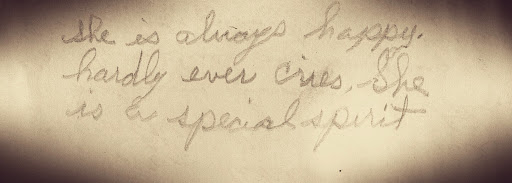 she is always happy.
hardly ever cries. She
is a special spirit